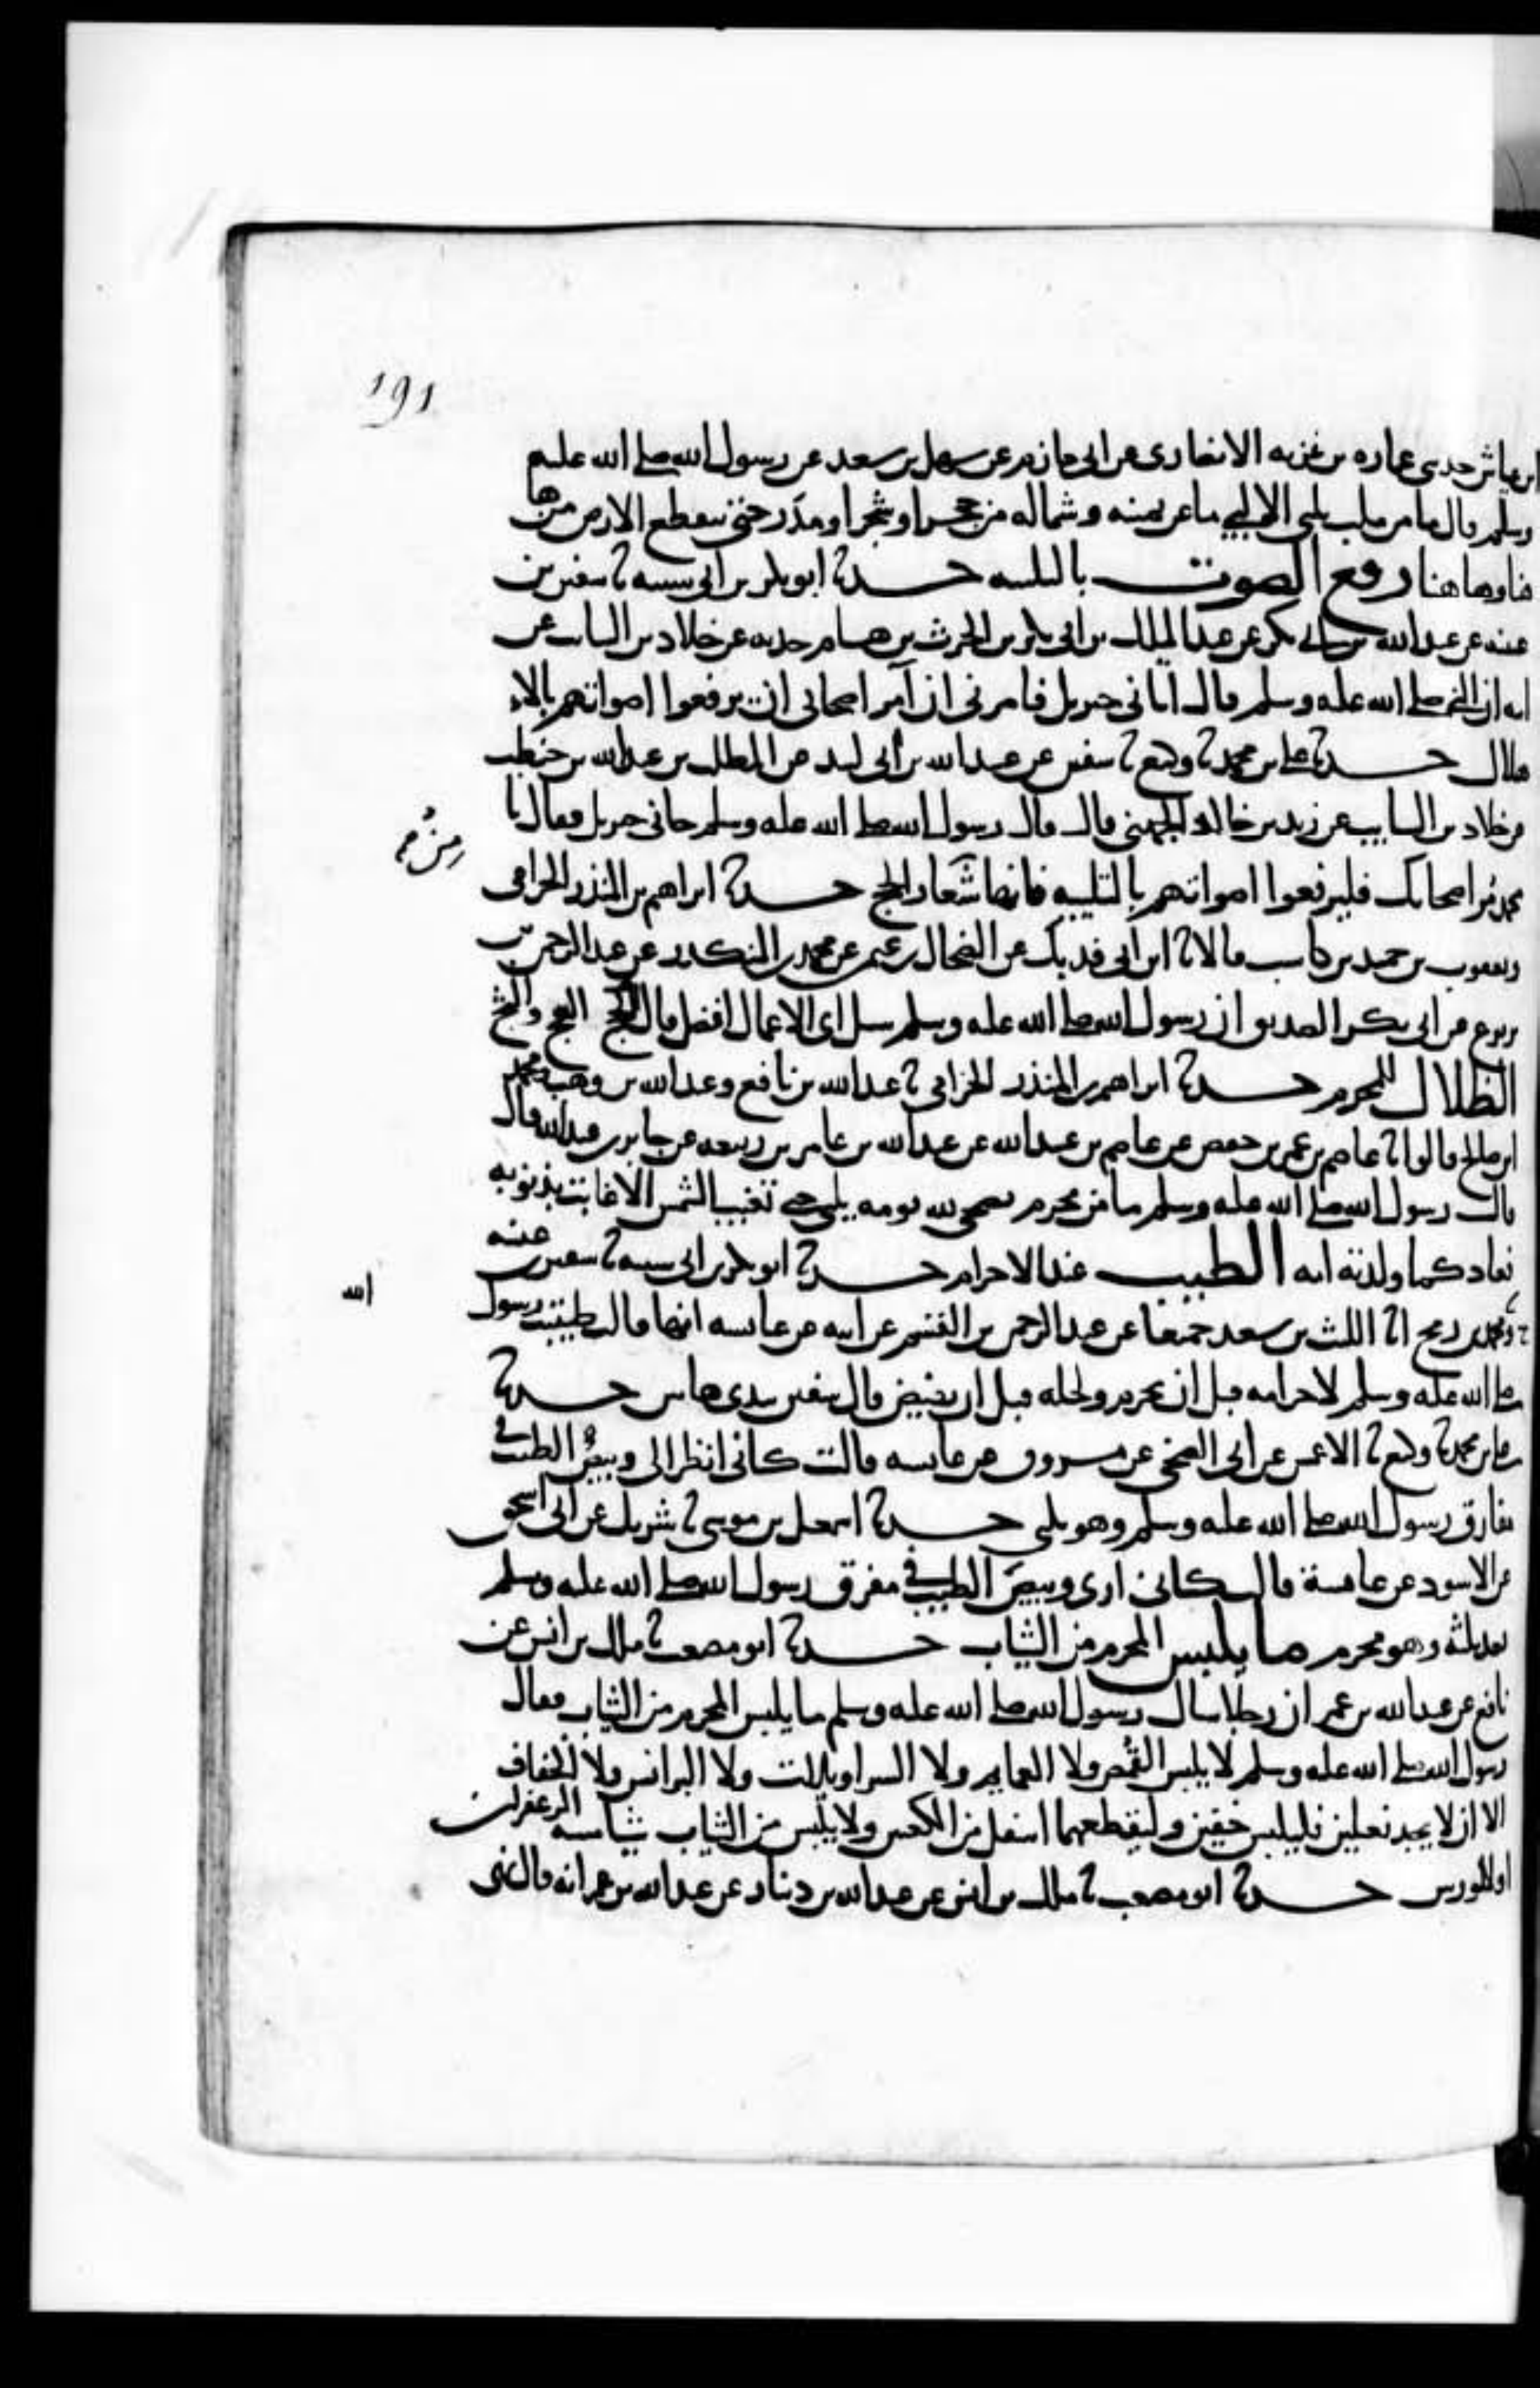 191
ابن عياش حدثني عماره بن غزيه الانصاري عن ابي حازم عن سهل بن سعد عن رسول الله صلى الله عليه
وسلم قال ما من ملب يلبي الا لبي ما عن يمينه وشماله من حجر او شجر او مدر حتى تنقطع الارض من ها
هنا وها هنا رفع الصوت بالتلبيه حدثنا ابو بكر بن ابي شيبه ثنا سفين بن
عيينه عن عبد الله بن ابي بكر عن عبد الملك بن ابي بكر بن الحرث بن هشام حدثه عن خلاد بن السائب عن
ابيه ان النبي صلى الله عليه وسلم قال اتاني جبريل فامرني ان آمر اصحابي ان يرفعوا اصواتهم بالاه
هلال حدثنا علي بن محمد ثنا وكيع ثنا سفين عن عبد الله بن ابي لبيد عن المطلب بن عبد الله بن حنطب
عن خلاد بن السايب عن زيد بن خالد الجهني قال قال رسول الله صلى الله عليه وسلم جاني جبريل فقال يا
محمد مُر اصحابك فليرفعوا اصواتهم بالتلبيه فانها شعار الحج حدثنا ابراهيم بن المنذر الحزامي
ويعقوب بن حميد بن كاسب قالا ثنا ابن ابي فديك عن الضحاك بن عثمن عن محمد بن المنكدر عن عبد الرحمن بن
يربوع عن ابي بكر الصديق ان رسول الله صلى الله عليه وسلم سئل اي الاعمال افضل قال العج والثج
الظلال للمحرم حدثنا ابراهيم بن المنذر الحزامي ثنا عبد الله بن نافع وعبد الله بن وهب ومحمد
ابن صالح قالوا ثنا عاصم بن عمر بن حفص عن عاصم بن عبيد الله عن عبد الله بن عامر بن ربيعه عن جابر بن عبد الله قال
قال رسول الله صلى الله عليه وسلم ما من محرم يضحى لله يومه يلبي حتى تغيب الشمس الا غابت بذنوبه
فعاد كما ولدته امه الطيب عند الاحرام حدثنا ابو بكر بن ابي شيبه ثنا سفين بن عيينه
ح وثنا محمد بن رمح انا الليث بن سعد جميعا عن عبد الرحمن بن القسم عن ابيه عن عايشه انها قالت طيبت رسول
الله
صلى الله عليه وسلم لاحرامه قبل ان يحرم ولحله قبل ان يفيض قال سفين بيدي هاتين حدثنا
علي بن محمد ثنا وكيع ثنا الاعمش عن ابي الضحى عن مسروق عن عايشه قالت كاني انظر الى وبيص الطيب في
مفارق رسول الله صلى الله عليه وسلم وهو يلبي حدثنا اسمعيل بن موسى ثنا شريك عن ابي اسحق
عن الاسود عن عايشة قالت كاني ارى وبيص الطيب في مفرق رسول الله صلى الله عليه وسلم
بعد ثلثه وهو محرم ما يلبس المحرم من الثياب حدثنا ابو مصعب ثنا ملك بن انس عن
نافع عن عبد الله بن عمر ان رجلا سال رسول الله صلى الله عليه وسلم ما يلبس المحرم من الثياب فقال
رسول الله صلى الله عليه وسلم لا يلبس القُمص ولا العمايم ولا السراويلات ولا البرانس ولا الخفاف
الا ان لا يجد نعلين فليلبس خفين وليقطعهما اسفل من الكعبين ولا يلبس من الثياب شيا مسه الزعفران
او الورس حدثنا ابو مصعب ثنا ملك بن انس عن عبد الله بن دينار عن عبد الله بن عمر انه قال نهى